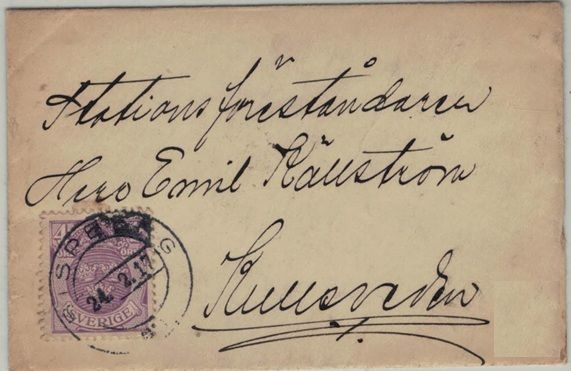 Stationsföreståndaren
Herr Emil Källström
Kullsveden
4
SPBERG
24.2.17
SVERIGE